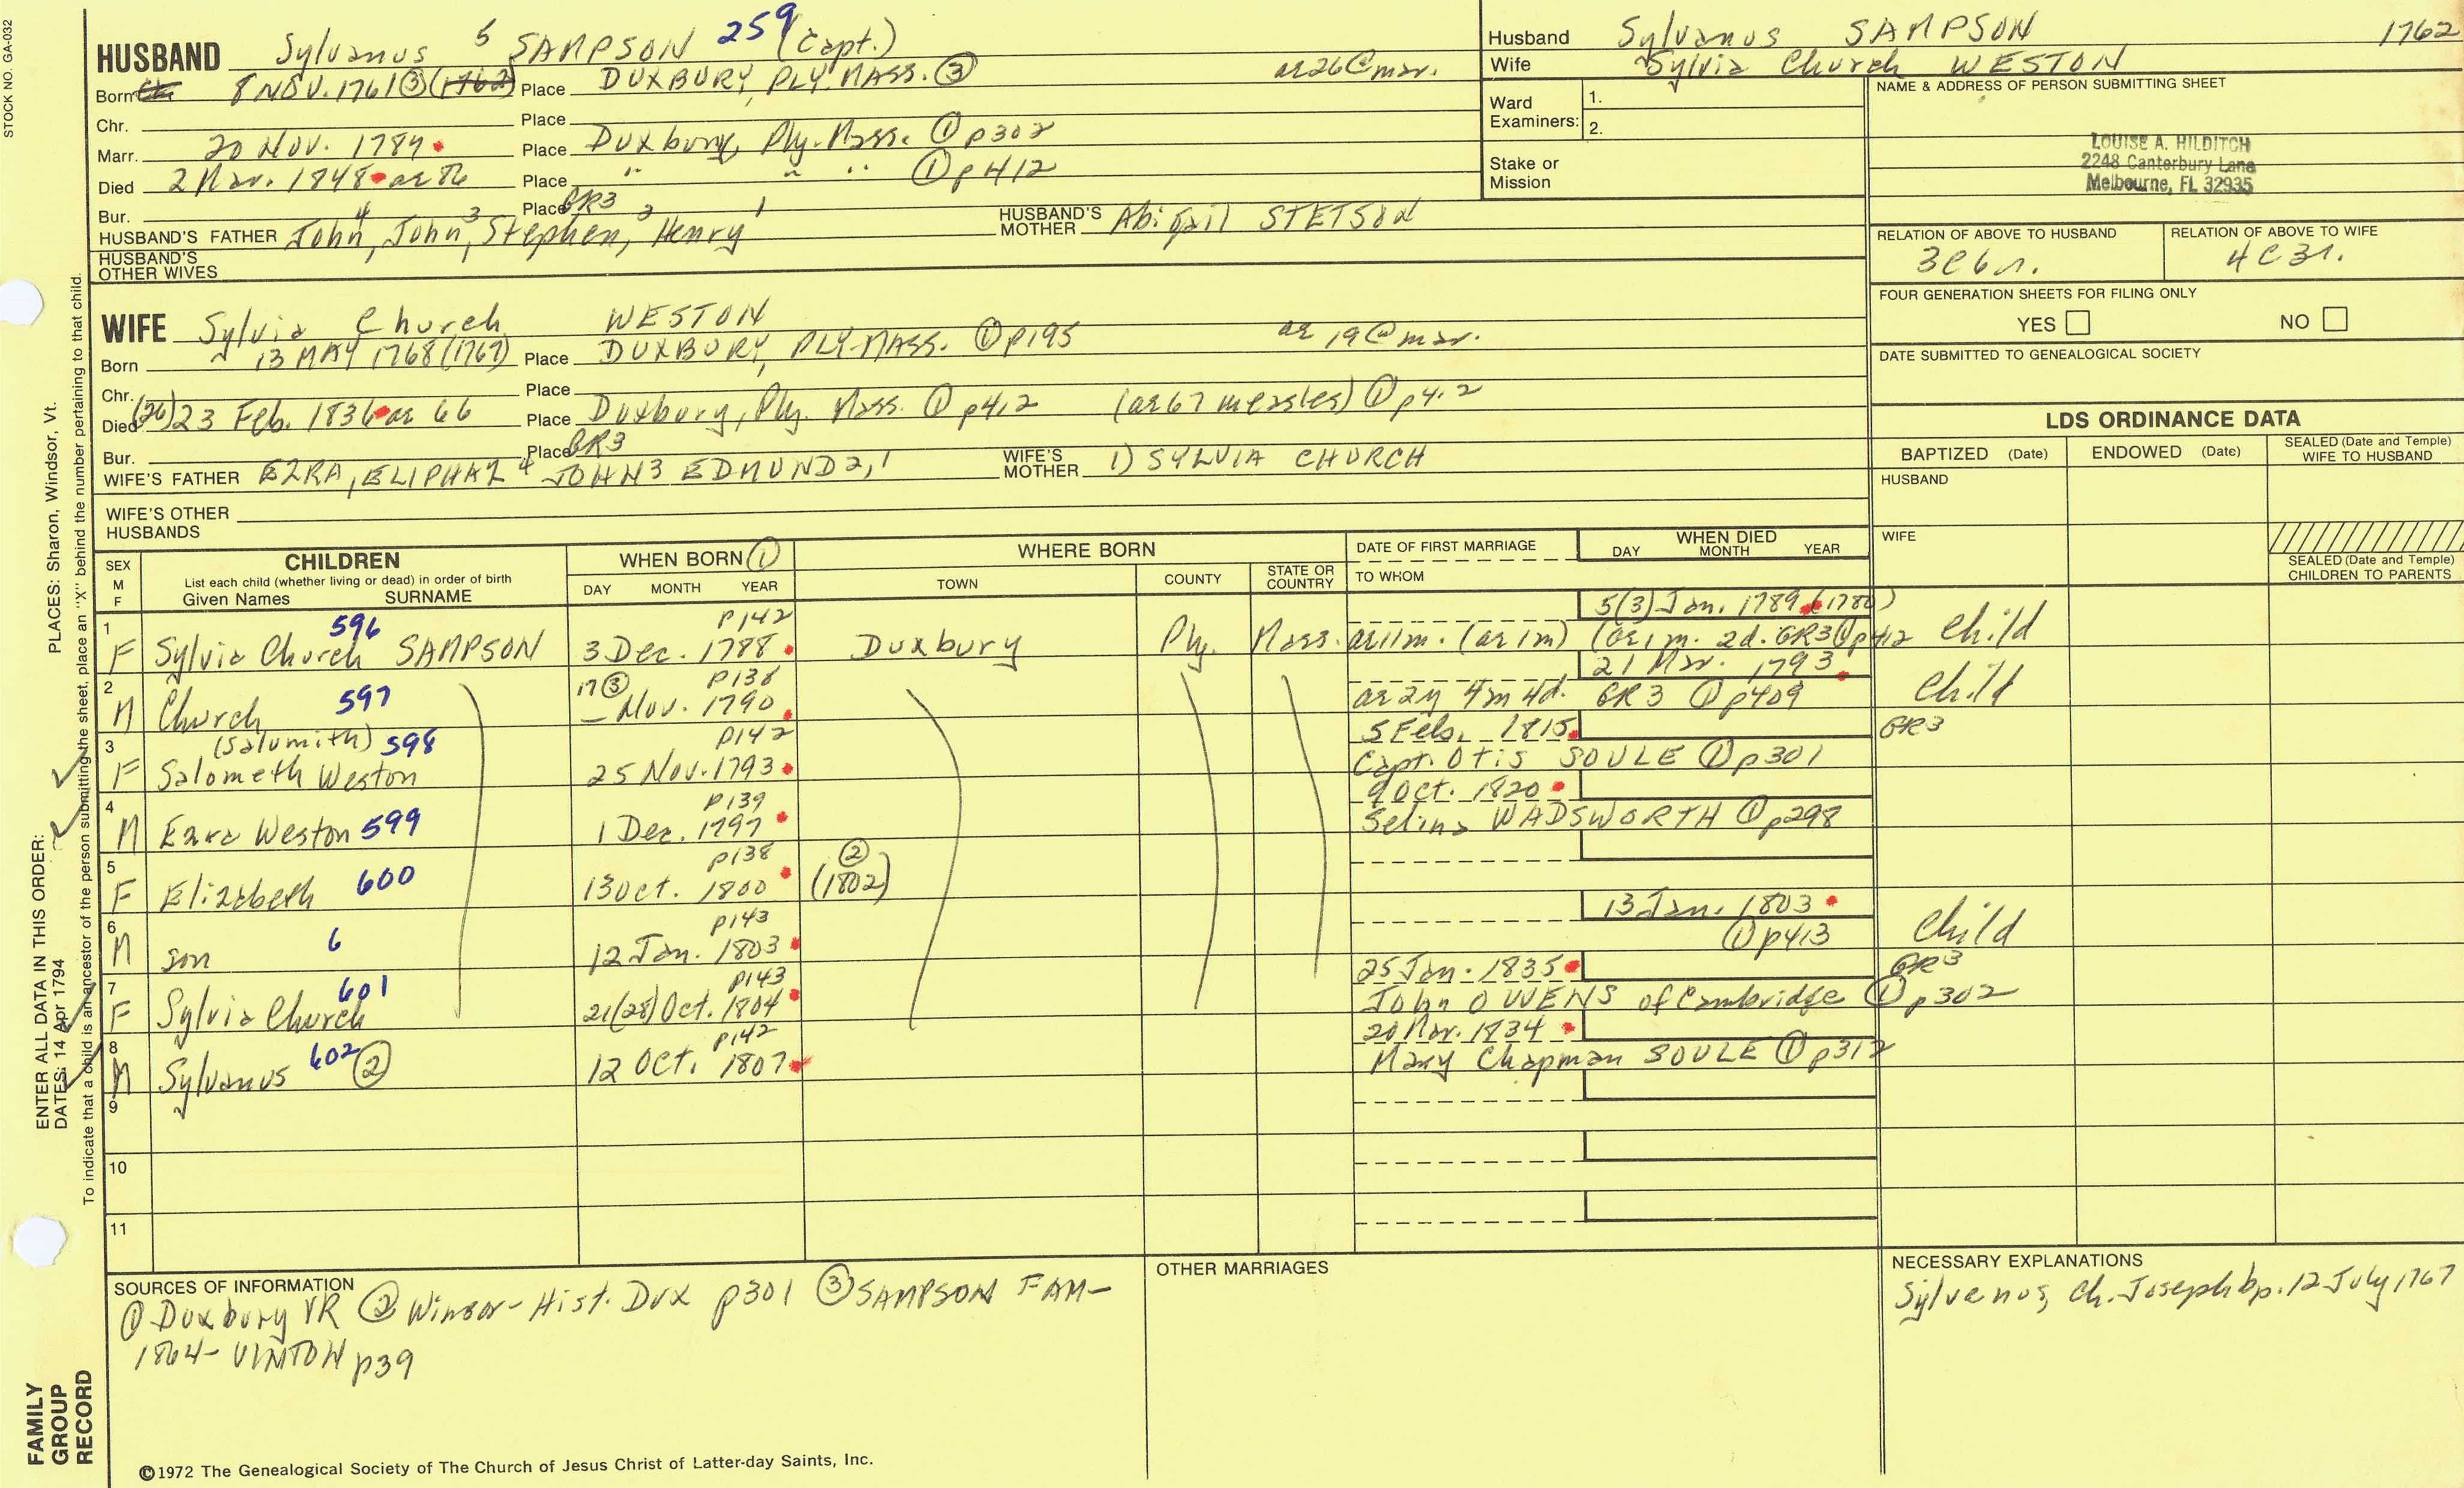 STOCK NO. GA-032
HUSBAND Sylvanus 5 SAMPSON 259 (Capt.)
Born 8 NOV. 1761 ③ (1762) Place DUXBURY, PLY. MASS. ③ ae 26 @ mar.
Chr. Place
Marr. 20 Nov. 1787 Place Duxbury, Ply. Mass. ① p302
Died 2 Mar. 1848 ae 86 Place " " " ① p412
Bur. Place GR3
HUSBAND'S FATHER John 4, John 3, Stephen 2, Henry 1 HUSBAND'S MOTHER Abigail STETSON
HUSBAND'S OTHER WIVES
WIFE Sylvia Church WESTON
Born 13 MAY 1768 (1767) Place DUXBURY, PLY. MASS. ① p195 ae 19 @ mar.
Chr. Place
Died (26) 23 Feb. 1836 ae 66 Place Duxbury, Ply. Mass. ① p412 (ae 67 measles) ① p412
Bur. Place GR3
WIFE'S FATHER EZRA, ELIPHAZ 4 JOHN 3 EDMUND 2, 1 WIFE'S MOTHER 1) SYLVIA CHURCH
WIFE'S OTHER HUSBANDS
Husband Sylvanus SAMPSON 1762
Wife Sylvia Church WESTON
Ward Examiners: 1.
2.
Stake or Mission
NAME & ADDRESS OF PERSON SUBMITTING SHEET
LOUISE A. HILDITCH
2248 Canterbury Lane
Melbourne, FL 32935
RELATION OF ABOVE TO HUSBAND RELATION OF ABOVE TO WIFE
3C6r. 4C3r.
FOUR GENERATION SHEETS FOR FILING ONLY
YES NO
DATE SUBMITTED TO GENEALOGICAL SOCIETY
LDS ORDINANCE DATA
BAPTIZED (Date) ENDOWED (Date) SEALED (Date and Temple) WIFE TO HUSBAND
HUSBAND
WIFE
SEALED (Date and Temple) CHILDREN TO PARENTS
SEX M F CHILDREN WHEN BORN ① WHERE BORN DATE OF FIRST MARRIAGE WHEN DIED
List each child (whether living or dead) in order of birth
Given Names SURNAME DAY MONTH YEAR TOWN COUNTY STATE OR COUNTRY TO WHOM DAY MONTH YEAR
596 p142 5(3) Jan. 1789 (1780)
1 F Sylvia Church SAMPSON 3 Dec. 1788 Duxbury Ply. Mass. ae 11m. (ae 1m) (ae 1 m. 2d. GR3 ① p412 Child
597 17 ③ p138 21 Mar. 1793
2 M Church — Nov. 1790 ae 2y 4m 4d. GR3 ① p409 Child
(Salumith) 598 p142 5 Feb. 1815 GR3
3 F Salometh Weston 25 Nov. 1793 Capt. Otis SOULE ① p301
p139 9 Oct. 1820
4 M Ezra Weston 599 1 Dec. 1797 Selina WADSWORTH ① p298
p138 ②
5 F Elizabeth 600 13 Oct. 1800 (1802)
p143 13 Jan. 1803
6 M son 6 12 Jan. 1803 ① p413 Child
601 p143 25 Jan. 1835 GR3
7 F Sylvia Church 21(28) Oct. 1804 John OWENS of Cambridge ① p302
602 p142 20 Mar. 1834
8 M Sylvanus ② 12 Oct. 1807 Mary Chapman SOULE ① p312
9
10
11
SOURCES OF INFORMATION
① Duxbury VR ② Winsor - Hist. Dux p301 ③ SAMPSON FAM-
1864 - VINTON p39
OTHER MARRIAGES
NECESSARY EXPLANATIONS
Sylvenos, ch. Joseph bp. 12 July 1767
©1972 The Genealogical Society of The Church of Jesus Christ of Latter-day Saints, Inc.
FAMILY GROUP RECORD
ENTER ALL DATA IN THIS ORDER:
DATES: 14 Apr 1794 PLACES: Sharon, Windsor, Vt.
To indicate that a child is an ancestor of the person submitting the sheet, place an "X" behind the number pertaining to that child.